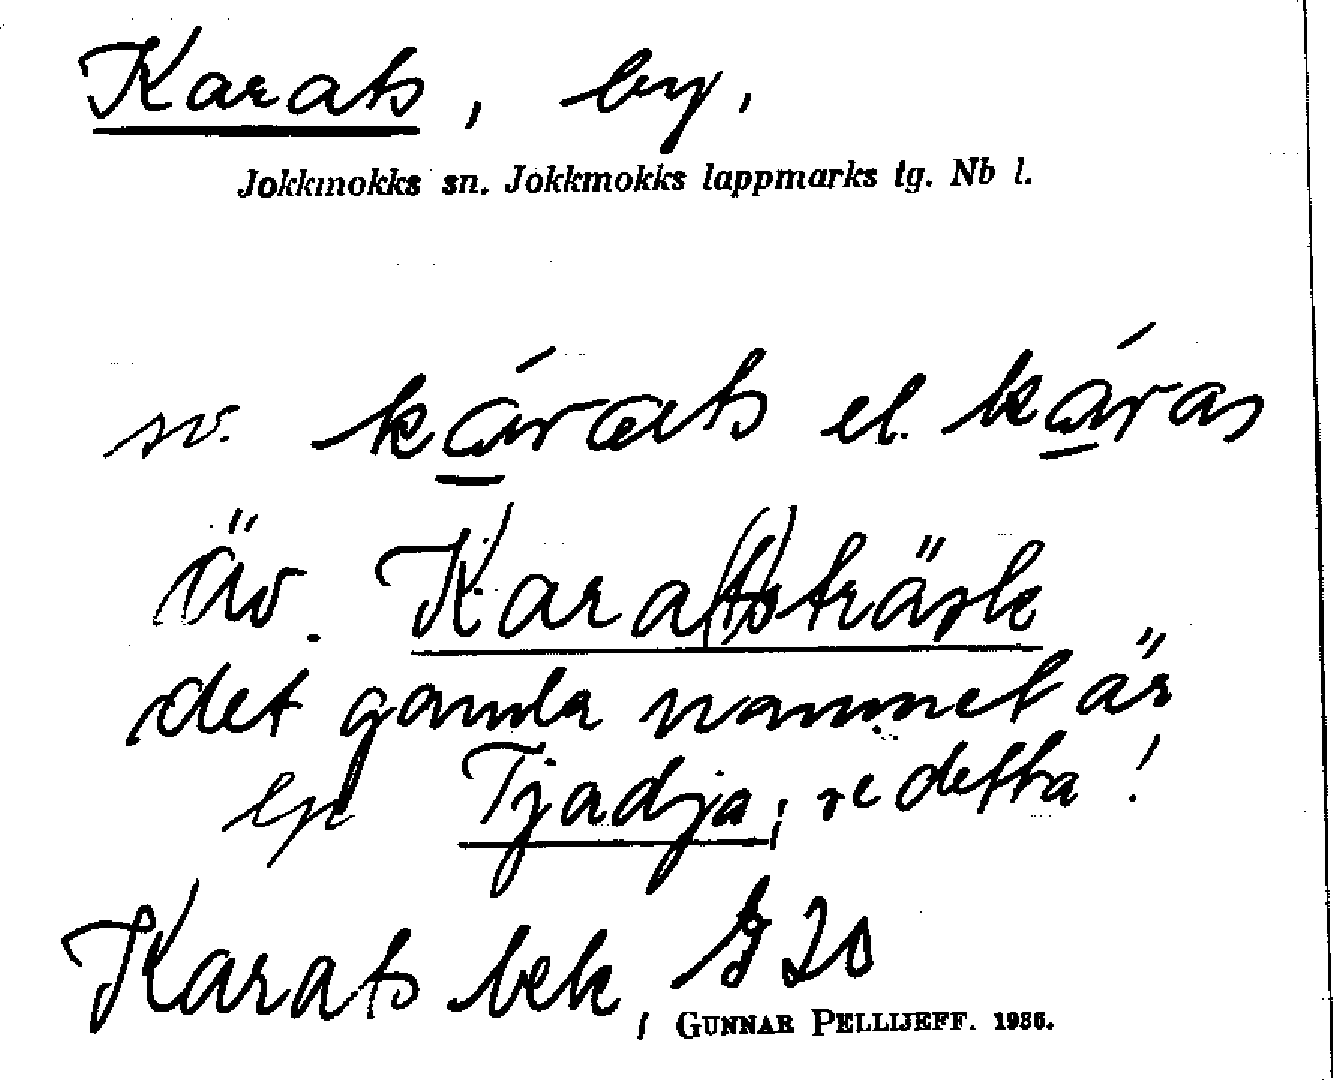 Karats, by.
Jokkmokks sn. Jokkmokks lappmarks tg. Nb l.
sv. kárats el. káras
äv. Kara(ts)träsk
det gamla namnet är
Tjadja; se detta!
Karats bek, 20
GUNNAR PELLIJEFF. 1936.